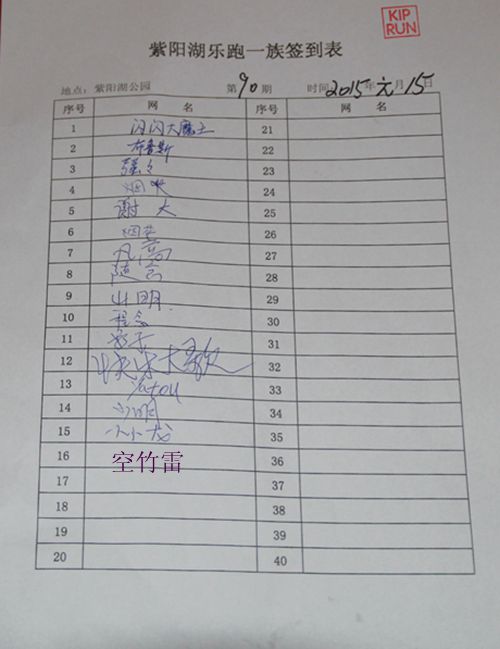 KIP
RUN
紫阳湖乐跑一族签到表
地点：紫阳湖公园 第90期 时间：2015年元月15日
序号 网 名 序号 网 名
1 闪闪大魔王 21
2 布鲁斯 22
3 强々 23
4 烟火 24
5 谢大 25
6 26
7 27
8 随言 28
9 山明 29
10 程念 30
11 31
12 快乐大 32
13 Yatou 33
14 34
15 小小龙 35
16 空竹雷 36
17 37
18 38
19 39
20 40